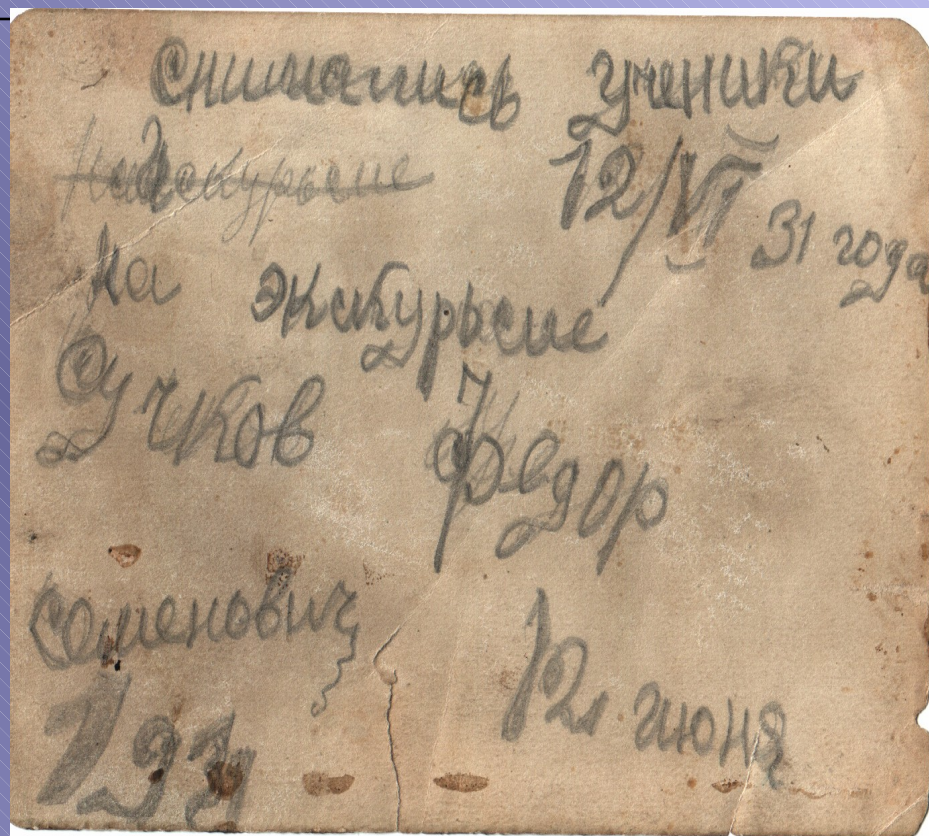 Снимались ученики
12/VI 31 года
на экскурьсие
Сучков Федор
Семенович
12 июня
193